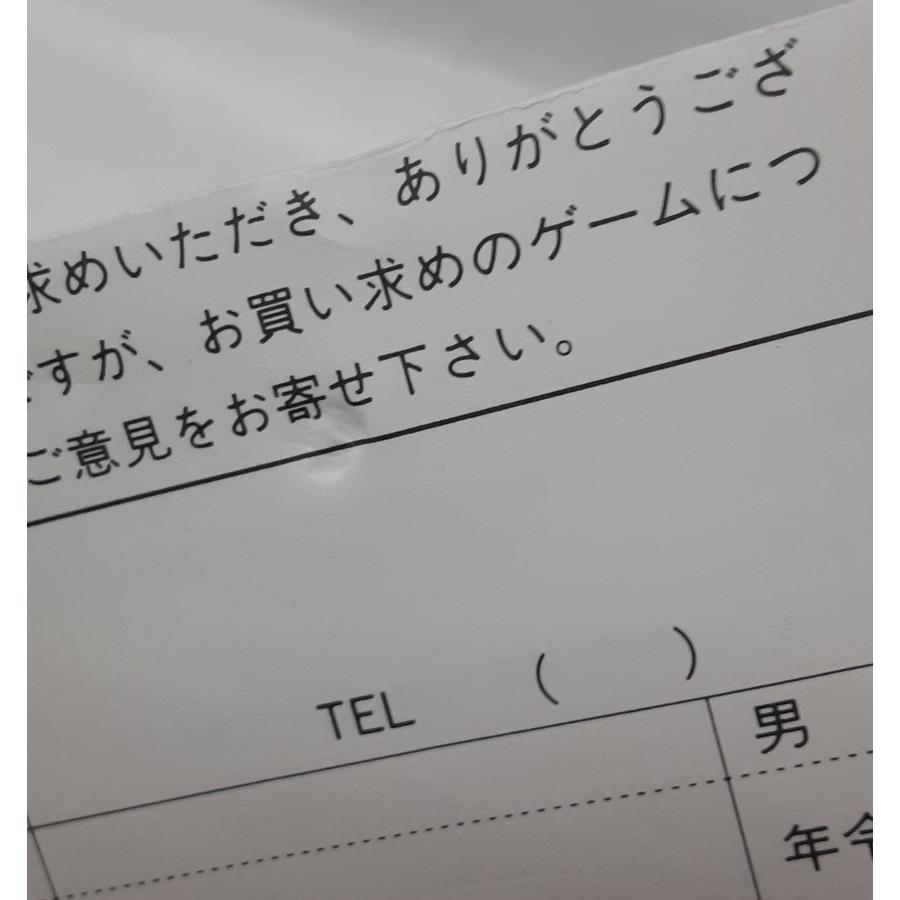 求めいただき、ありがとうござ
ですが、お買い求めのゲームにつ
ご意見をお寄せ下さい。
TEL ( )
男
年令